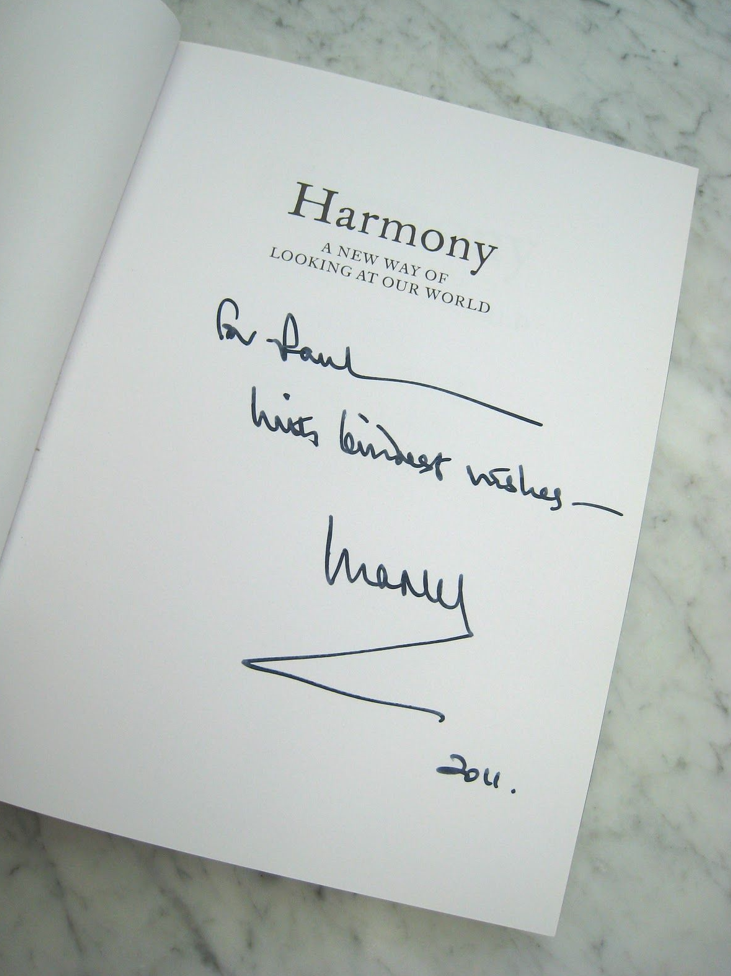 Harmony
A NEW WAY OF
LOOKING AT OUR WORLD
for Paul
with kindest wishes —
2011.